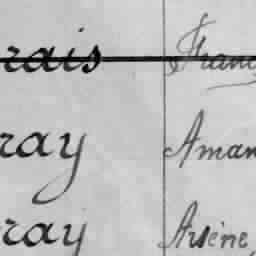 rais Franç
ray Aman
ray Arsène